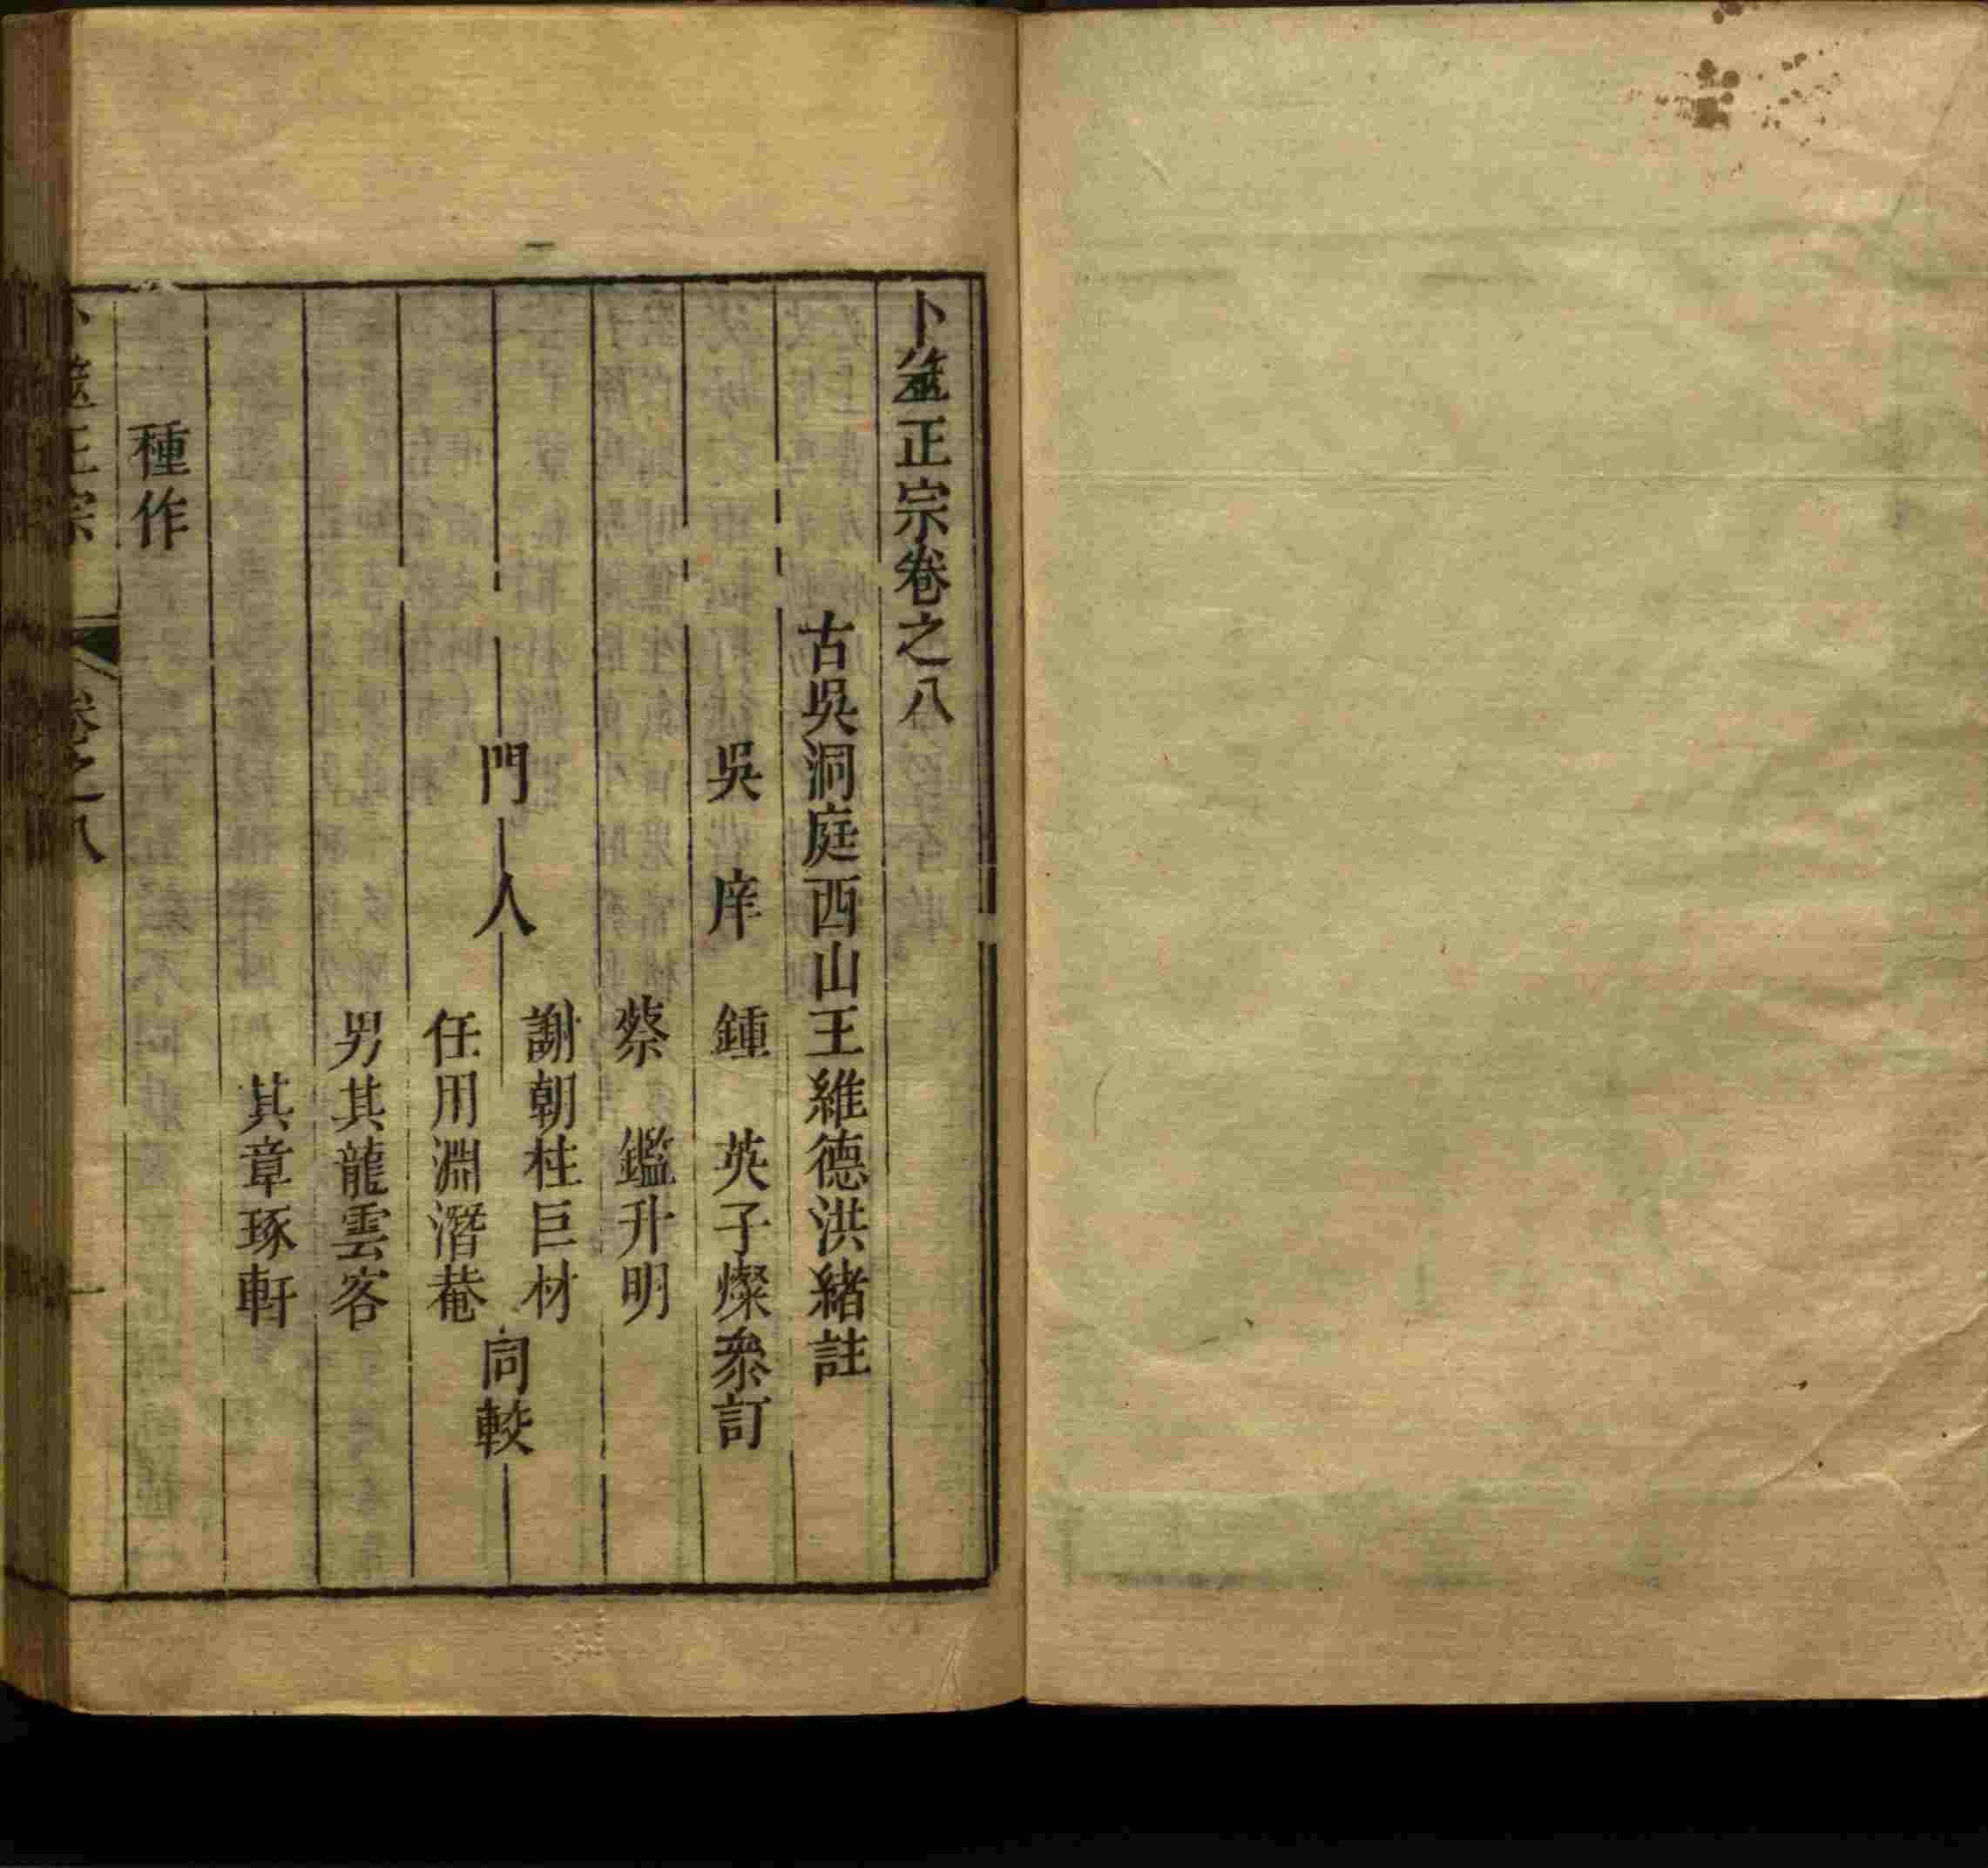 卜筮正宗卷之八
古吳洞庭西山王維德洪緒註
吳庠 鍾 英子燦叅訂
蔡 鑑升明
門人 謝朝柱巨材 同較
任用淵潛菴
男其龍雲客
其章琢軒
種作
卜筮正宗 卷之八 一